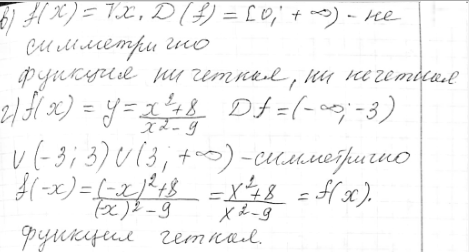 в) f(x) = √x. D(f) = [0; +∞) - не
симметрично
функция ни четная, ни нечетная
г) f(x) = y = x²+8/x²-9 Df = (-∞; -3)
∪ (-3; 3) ∪ (3; +∞) - симметрично
f(-x) = (-x)²+8/(-x)²-9 = x²+8/x²-9 = f(x).
функция четная.